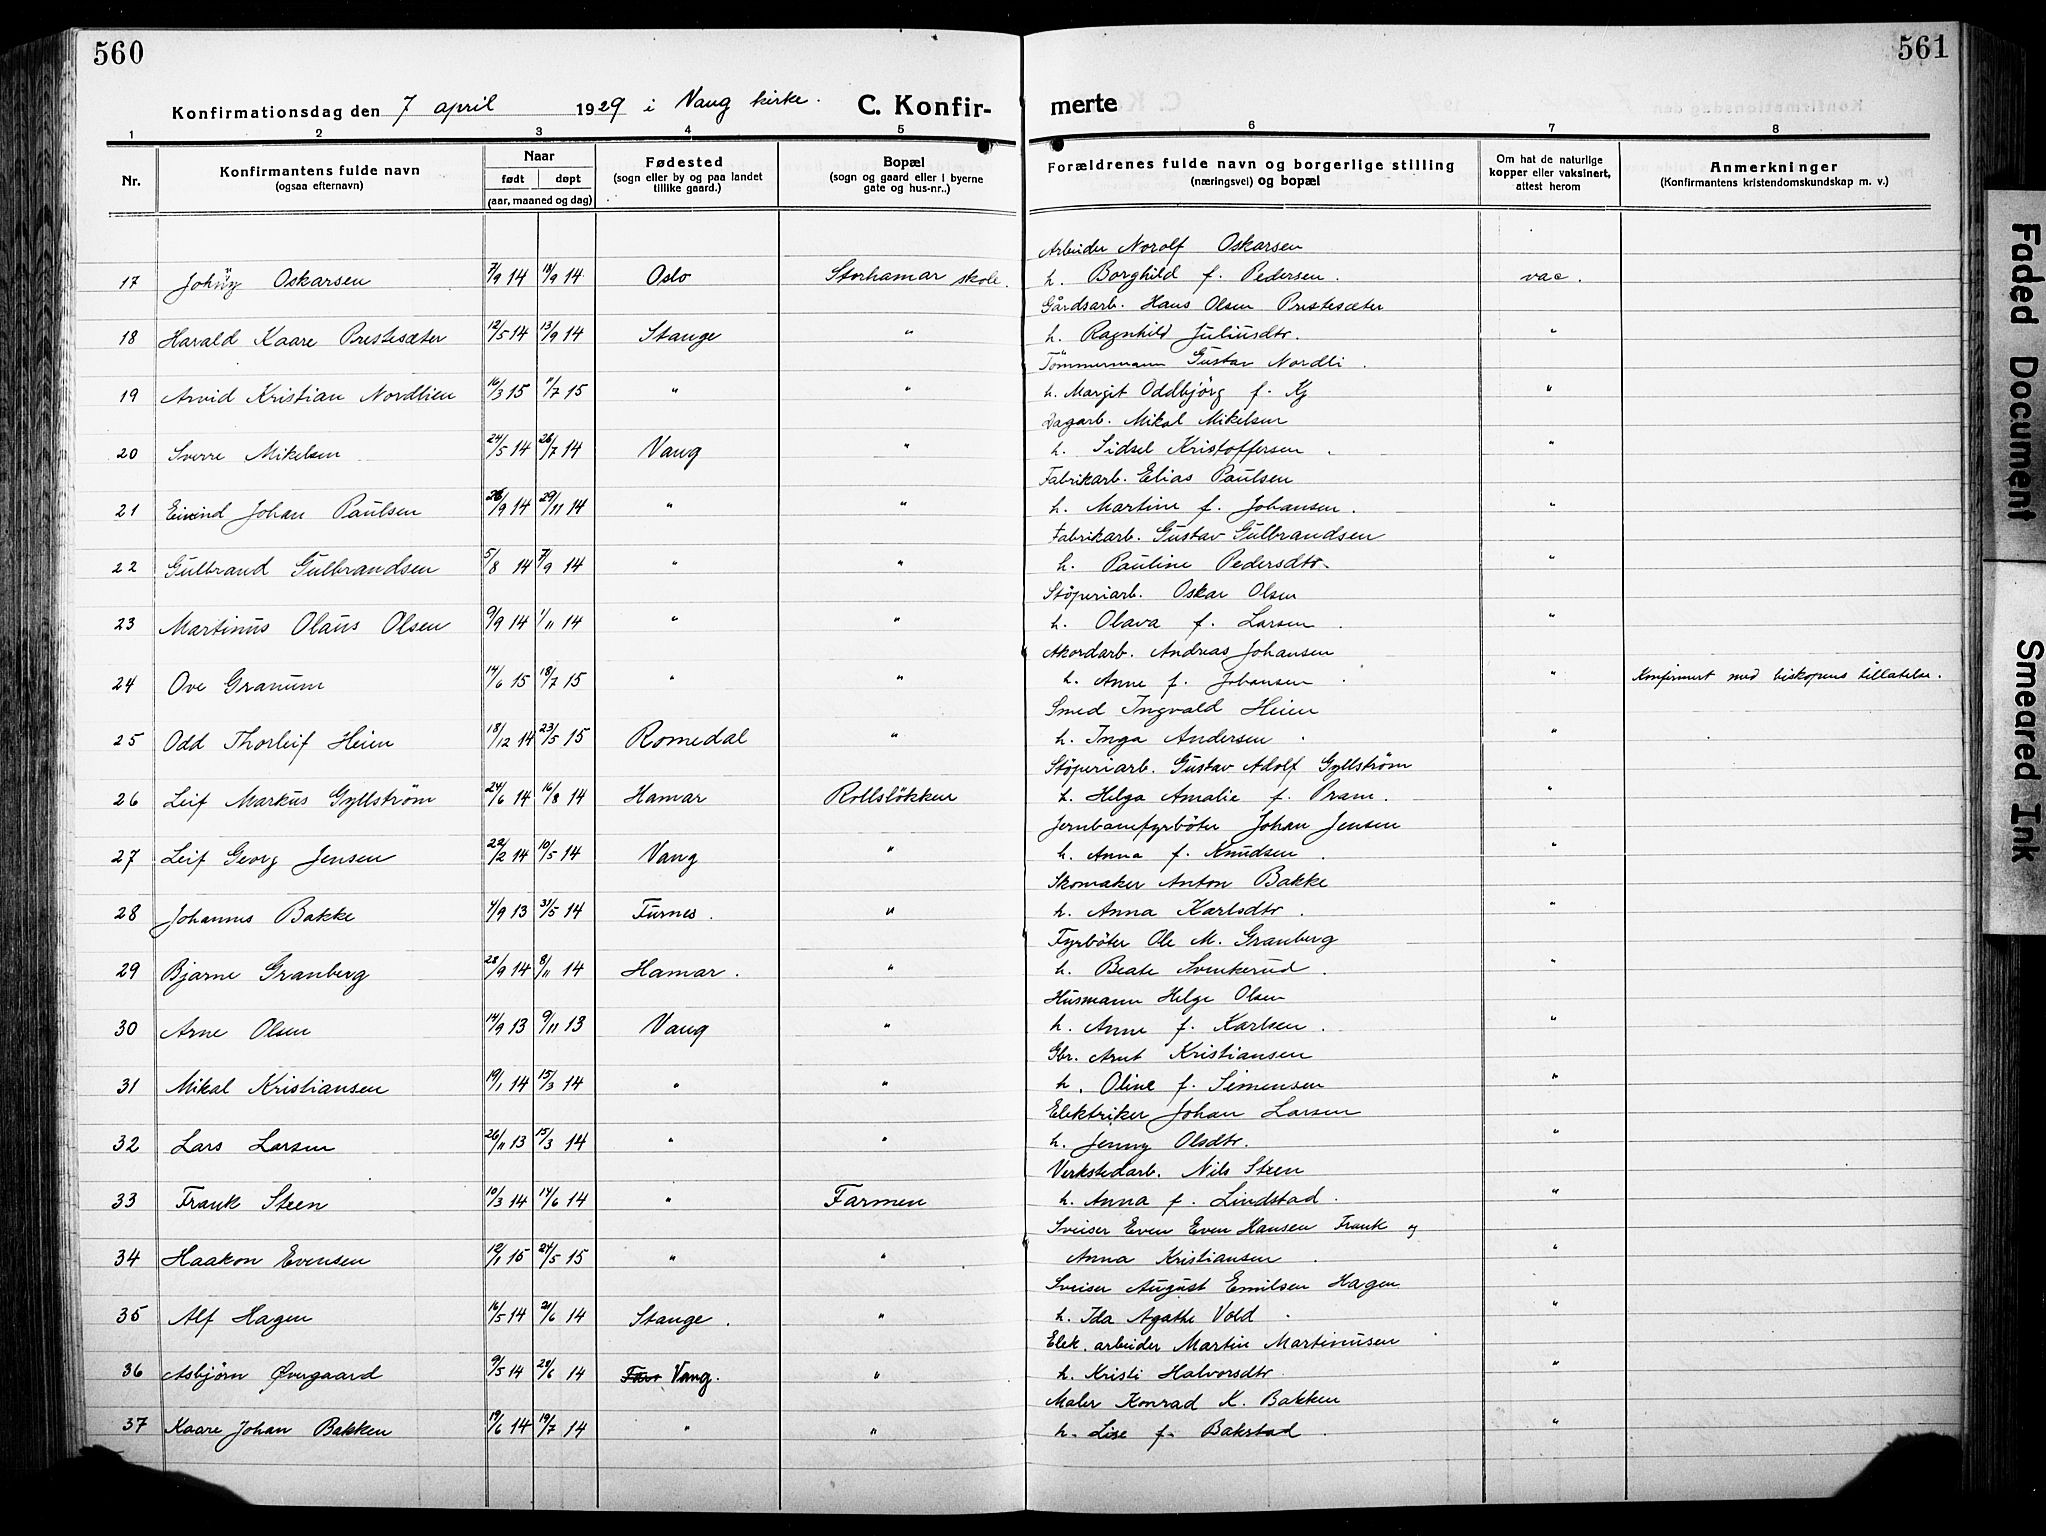 560
Konfirmationsdag den 7 april 1929 i Vang kirke. C. Konfir-
1 2 3 4 5
Nr. Konfirmantens fulde navn (ogsaa efternavn) Naar født døpt (aar, maaned og dag) Fødested (sogn eller by og paa landet tillike gaard.) Bopæl (sogn og gaard eller i byerne gate og hus-nr..)
17 Johny Oskarsen 7/9 14 18/9 14 Oslo Storhamar skole.
18 Harald Kaare Prestesæter 12/5 14 13/9 14 Stange "
19 Arvid Kristian Nordlien 16/3 15 11/7 15 " "
20 Sverre Mikelsen 24/5 14 26/7 14 Vang "
21 Eivind Johan Paulsen 26/9 14 29/11 14 " "
22 Gulbrand Gulbrandsen 5/8 14 7/9 14 " "
23 Martinus Olaus Olsen 9/9 14 1/11 14 " "
24 Ove Granum 14/6 15 18/7 15 " "
25 Odd Thorleif Heien 18/12 14 23/5 15 Romedal "
26 Leif Markus Gyllstrøm 24/6 14 16/8 14 Hamar Rollsløkken
27 Leif Georg Jensen 22/2 14 10/5 14 Vang "
28 Johannes Bakke 4/9 13 31/5 14 Furnes. "
29 Bjarne Granberg 28/9 14 8/11 14 Hamar. "
30 Arne Olsen 14/9 13 9/11 13 Vang "
31 Mikal Kristiansen 19/1 14 15/3 14 " "
32 Lars Larsen 26/11 13 15/3 14 " "
33 Frank Steen 10/3 14 14/6 14 " Farmen
34 Haakon Evensen 15 24/5 15 " "
35 Alf Hagen 16/5 14 21/6 14 Stange. "
36 Asbjørn Øvergaard 9/5 14 28/6 14 Vang. "
37 Kaare Johan Bakken 19/6 14 19/7 14 " "
561
merte
6 7 8
Forældrenes fulde navn og borgerlige stilling (næringsvei) og bopæl Om hat de naturlige kopper eller vaksinert, attest herom Anmerkninger (Konfirmantens kristendomskundskap m. v.)
Arbeider Norolf Oskarsen
h. Borghild f. Pedersen. vac.
Gårdsarb. Hans Olsen Prestesæter
h. Ragnhild Juliusdtr. "
Tömmermann Gustav Nordli.
h. Margit Oddbjörg f. Kj "
Dagarb. Mikal Mikelsen
h. Sidsel Kristoffersen. "
Fabrikarb. Elias Paulsen
h. Martine f. Johansen. "
Fabrikarb. Gustav Gulbrandsen
h. Pauline Pedersdtr. "
Stöperiarb. Oskar Olsen
h. Olava f. Larsen. "
Akordarb. Andreas Johansen
h. Anne f. Johansen. " Konfirmert med biskopens tillatelse.
Smed Ingvald Heien
h. Inga Andersen. "
Stöperiarb. Gustav Adolf Gyllstrøm
h. Helga Amalie f. Pram. "
Jernbanefyrböter Johan Jensen
h. Anna f. Knudsen. "
Skomaker Anton Bakke
h. Anna Karlsdtr. "
Fyrböter Ole M. Granberg
h. Beate Svenkerud. "
Husmann Helge Olsen
h. Anne f. Karlsen. "
Gbr. Arnt Kristiansen
h. Oline f. Simensen "
Elektriker Johan Larsen
h. Jenny Olsdtr. "
Verkstedarb. Nils Steen
h. Anna f. Lindstad. "
Sveiser Even Even Hansen Frank og
Anna Kristiansen. "
Sveiser August Emilsen Hagen
h. Ida Agathe Vold. "
Elek. arbeider Martin Martinusen
h. Kristi Halvorsdtr. "
Maler Konrad K. Bakken
h. Lise f. Bakstad. "
Faded Document
Smeared Ink